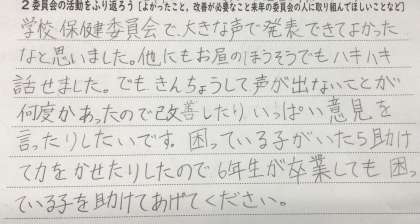 2 委員会の活動をふり返ろう（よかったこと，改善が必要なこと来年の委員会の人に取り組んでほしいことなど）
学校保健委員会で、大きな声で発表できてよかった
なと思いました。他にもお昼のほうそうでもハキハキ
話せました。でも、きんちょうして声が出ないことが
何度かあったので改善したりいっぱい意見を
言ったりしたいです。困っている子がいたら助け
て力をかせたりしたので6年生が卒業しても困っ
ている子を助けてあげてください。